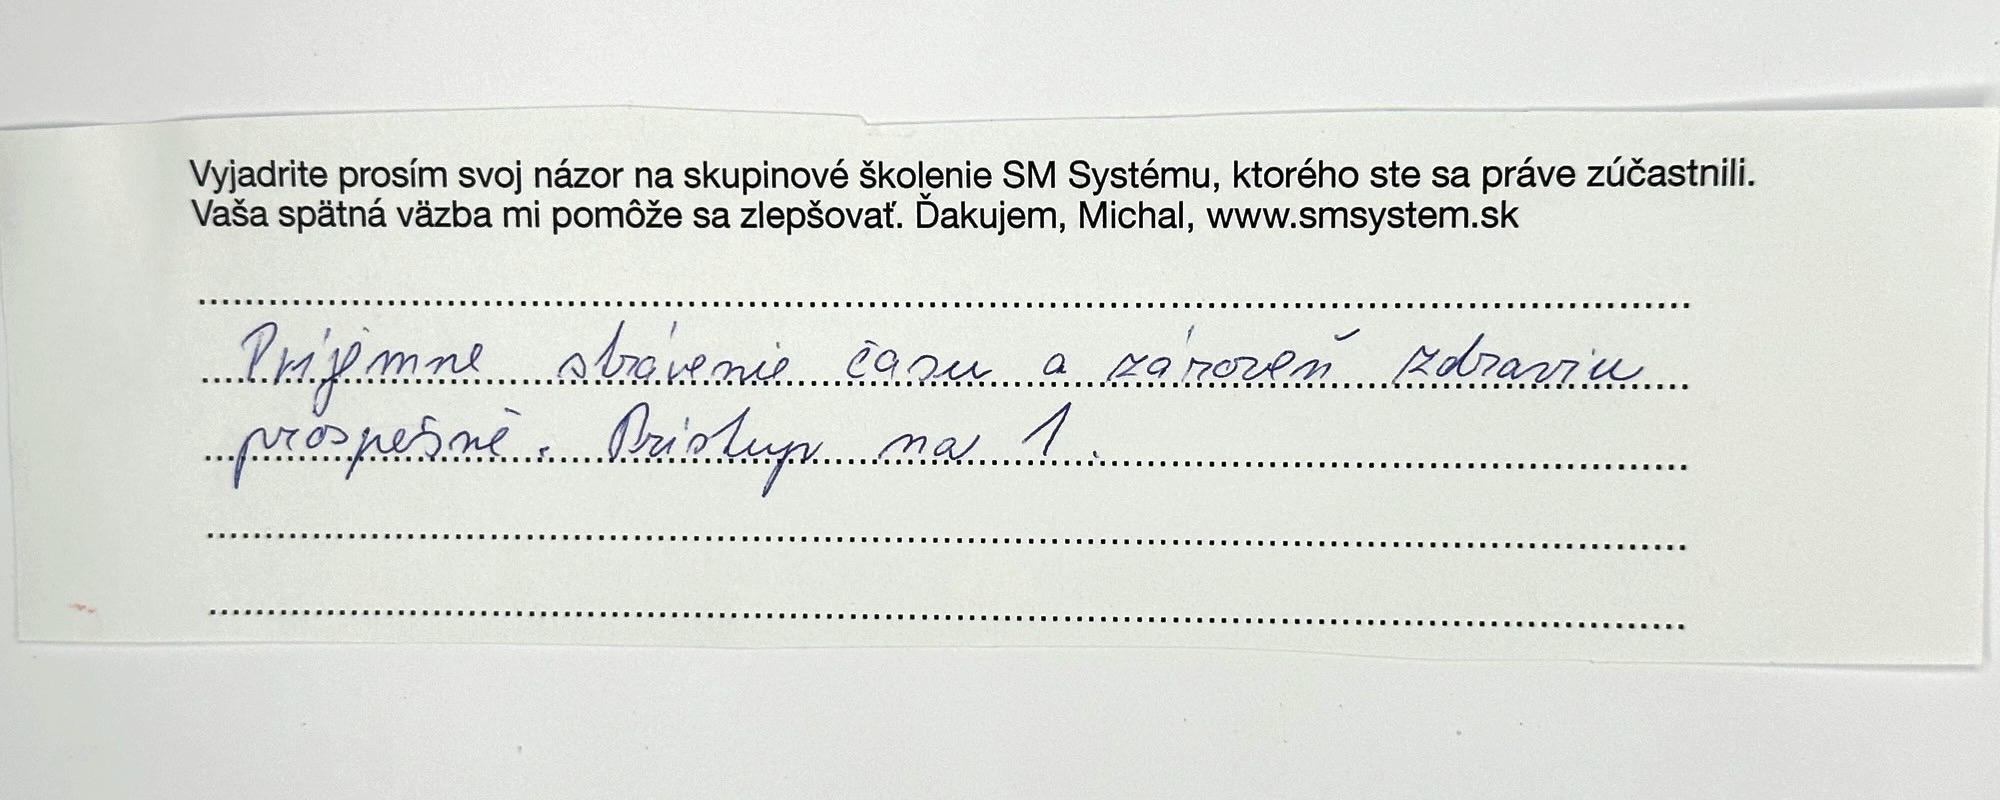 Vyjadrite prosím svoj názor na skupinové školenie SM Systému, ktorého ste sa práve zúčastnili.
Vaša spätná väzba mi pomôže sa zlepšovať. Ďakujem, Michal, www.smsystem.sk
Príjemne strávenie času a zároveň zdraviu
prospešné. Prístup na 1.